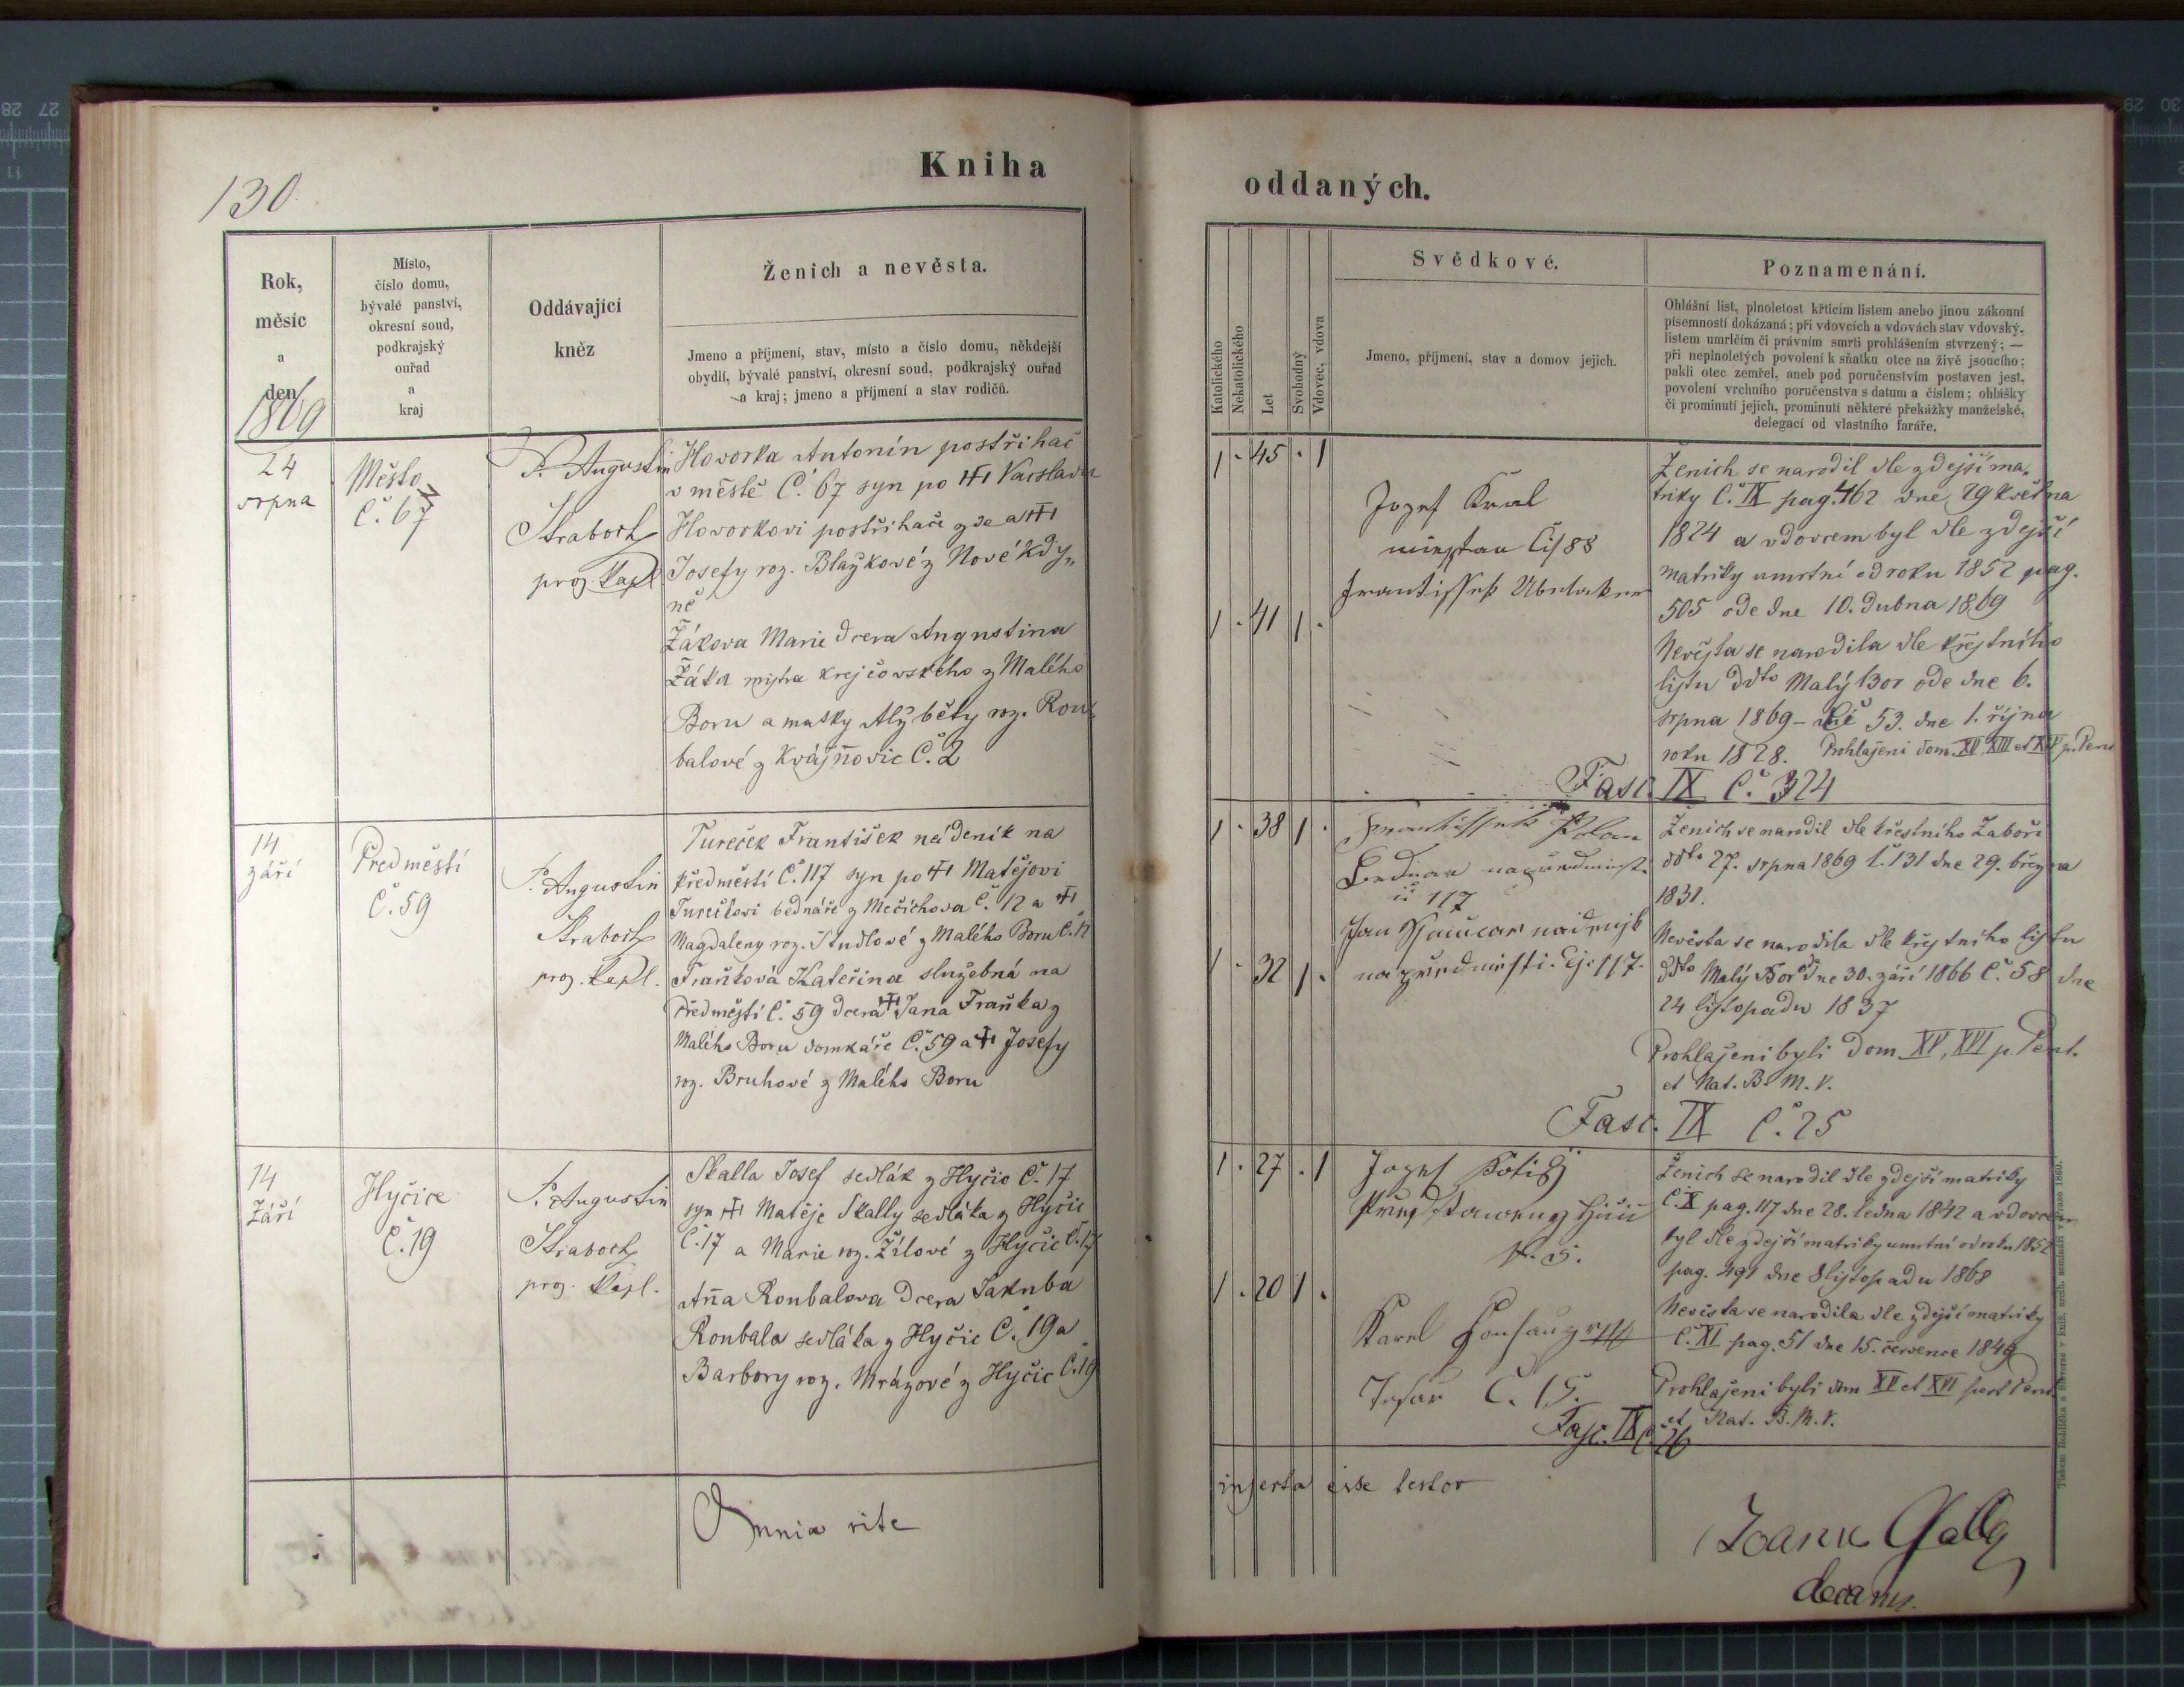 130.
Kniha
oddaných.
Rok,
měsíc
a
den
1869
Místo,
číslo domu,
bývalé panství,
okresní soud,
podkrajský
ouřad
a
kraj
Oddávající
kněz
Ženich a nevěsta.
Jmeno a příjmení, stav, místo a číslo domu, někdejší
obydlí, bývalé panství, okresní soud, podkrajský ouřad
a kraj; jmeno a příjmení a stav rodičů.
24
srpna
Město
Č. 67
P. Augustin
Straboch
proz. kapl
Hovorka Antonín postřihač
v městě Č. 67 syn po Vácslavu
Hovorkovi postřihači zde a
Josefy roz. Blažkové z Nové Kdy„
ně
Žákova Marie dcera Augustina
Žáka mistra krejčovského z Malého
Boru a matky Alžběty roz. Rou
balové z Kvášňovic Č. 2
14
září
Předměstí
Č. 59
P. Augustin
Straboch
proz. kapl.
Tureček František nádeník na
předměstí Č. 117 syn po Matějovi
Turečkovi bednáři z Mečichova Č. 12 a
Magdaleny roz. Študlové z Malého Boru Č. 12
Fraňková Kateřina služebná na
předměstí Č. 59 dcera Jana Fraňka z
Malého Boru domkáře Č. 59 a Josefy
roz. Bruhové z Malého Boru
14
Září
Hyčice
Č. 19
P. Augustin
Straboch
proz. kapl.
Skalla Josef sedlák z Hyčic Č. 17
syn Matěje Skally sedláka z Hyčic
Č. 17 a Marie roz. Žílové z Hyčic Č. 17
Anna Roubalova dcera Jakuba
Roubala sedláka z Hyčic Č. 19 a
Barbory roz. Mrázové z Hyčic Č. 19
Omnia rite
Katolického
Nekatolického
Let
Svobodný
Vdovec, vdova
Svědkové.
Jmeno, příjmení, stav a domov jejich.
Poznamenání.
Ohlášní list, plnoletost křticím listem anebo jinou zákonní
písemností dokázaná; při vdovcích a vdovách stav vdovský,
listem umrlčím či právním smrti prohlášením stvrzený; —
při neplnoletých povolení k sňatku otce na živě jsoucího;
pakli otec zemřel, aneb pod poručenstvím postaven jest,
povolení vrchního poručenstva s datum a číslem; ohlášky
či prominutí jejich, prominutí některé překážky manželské,
delegací od vlastního faráře.
1 · 45 · 1
Jozef Kral
Čis 88
Frantissek
1 · 41 1 ·
Ženich se narodil dle zdejší ma„
triky Č. IX pag. 462 dne 29 května
1824 a vdovcem byl dle zdejší
matriky umrtní od roku 1852 pag.
505 ode dne 10. dubna 1869
Nevěsta se narodila dle křestního
listu ddto Malý Bor ode dne 6.
srpna 1869 – Čís 53. dne 1. října
roku 1828.
Fasc. IX Č. 324
1 · 38 1 ·
Frantissek
117
Jan
1 · 32 1 ·
Ženich se narodil dle křestního Zaboří
ddto 27. srpna 1869 č. 131 dne 29. března
1831.
Nevěsta se narodila dle křestního listu
ddto Malý Bor dne 30. září 1866 Č. 58 dne
24 listopadu 1837
Prohlašeni byli Dom. XV, XVI p. Pent.
et Nat. B. M. V.
Fasc. IX Č. 25
1 · 27 · 1
Jozef
1 · 20 1 ·
Karel
Č. 15.
Fasc. IX Č. 26
Ženich se narodil dle zdejší matriky
Č. X pag. 117 dne 28. ledna 1842 a vdovcem
byl dle zdejší matriky umrtní od roku 1852
pag. 491 dne 8 listopadu 1868
Nevěsta se narodila dle zdejší matriky
Č. XI pag. 51 dne 15. července 1849
Prohlašeni byli dom XV et XVI post Pent.
et Nat. B. M. V.
inserta esse testor
Joann Gally
decanus.